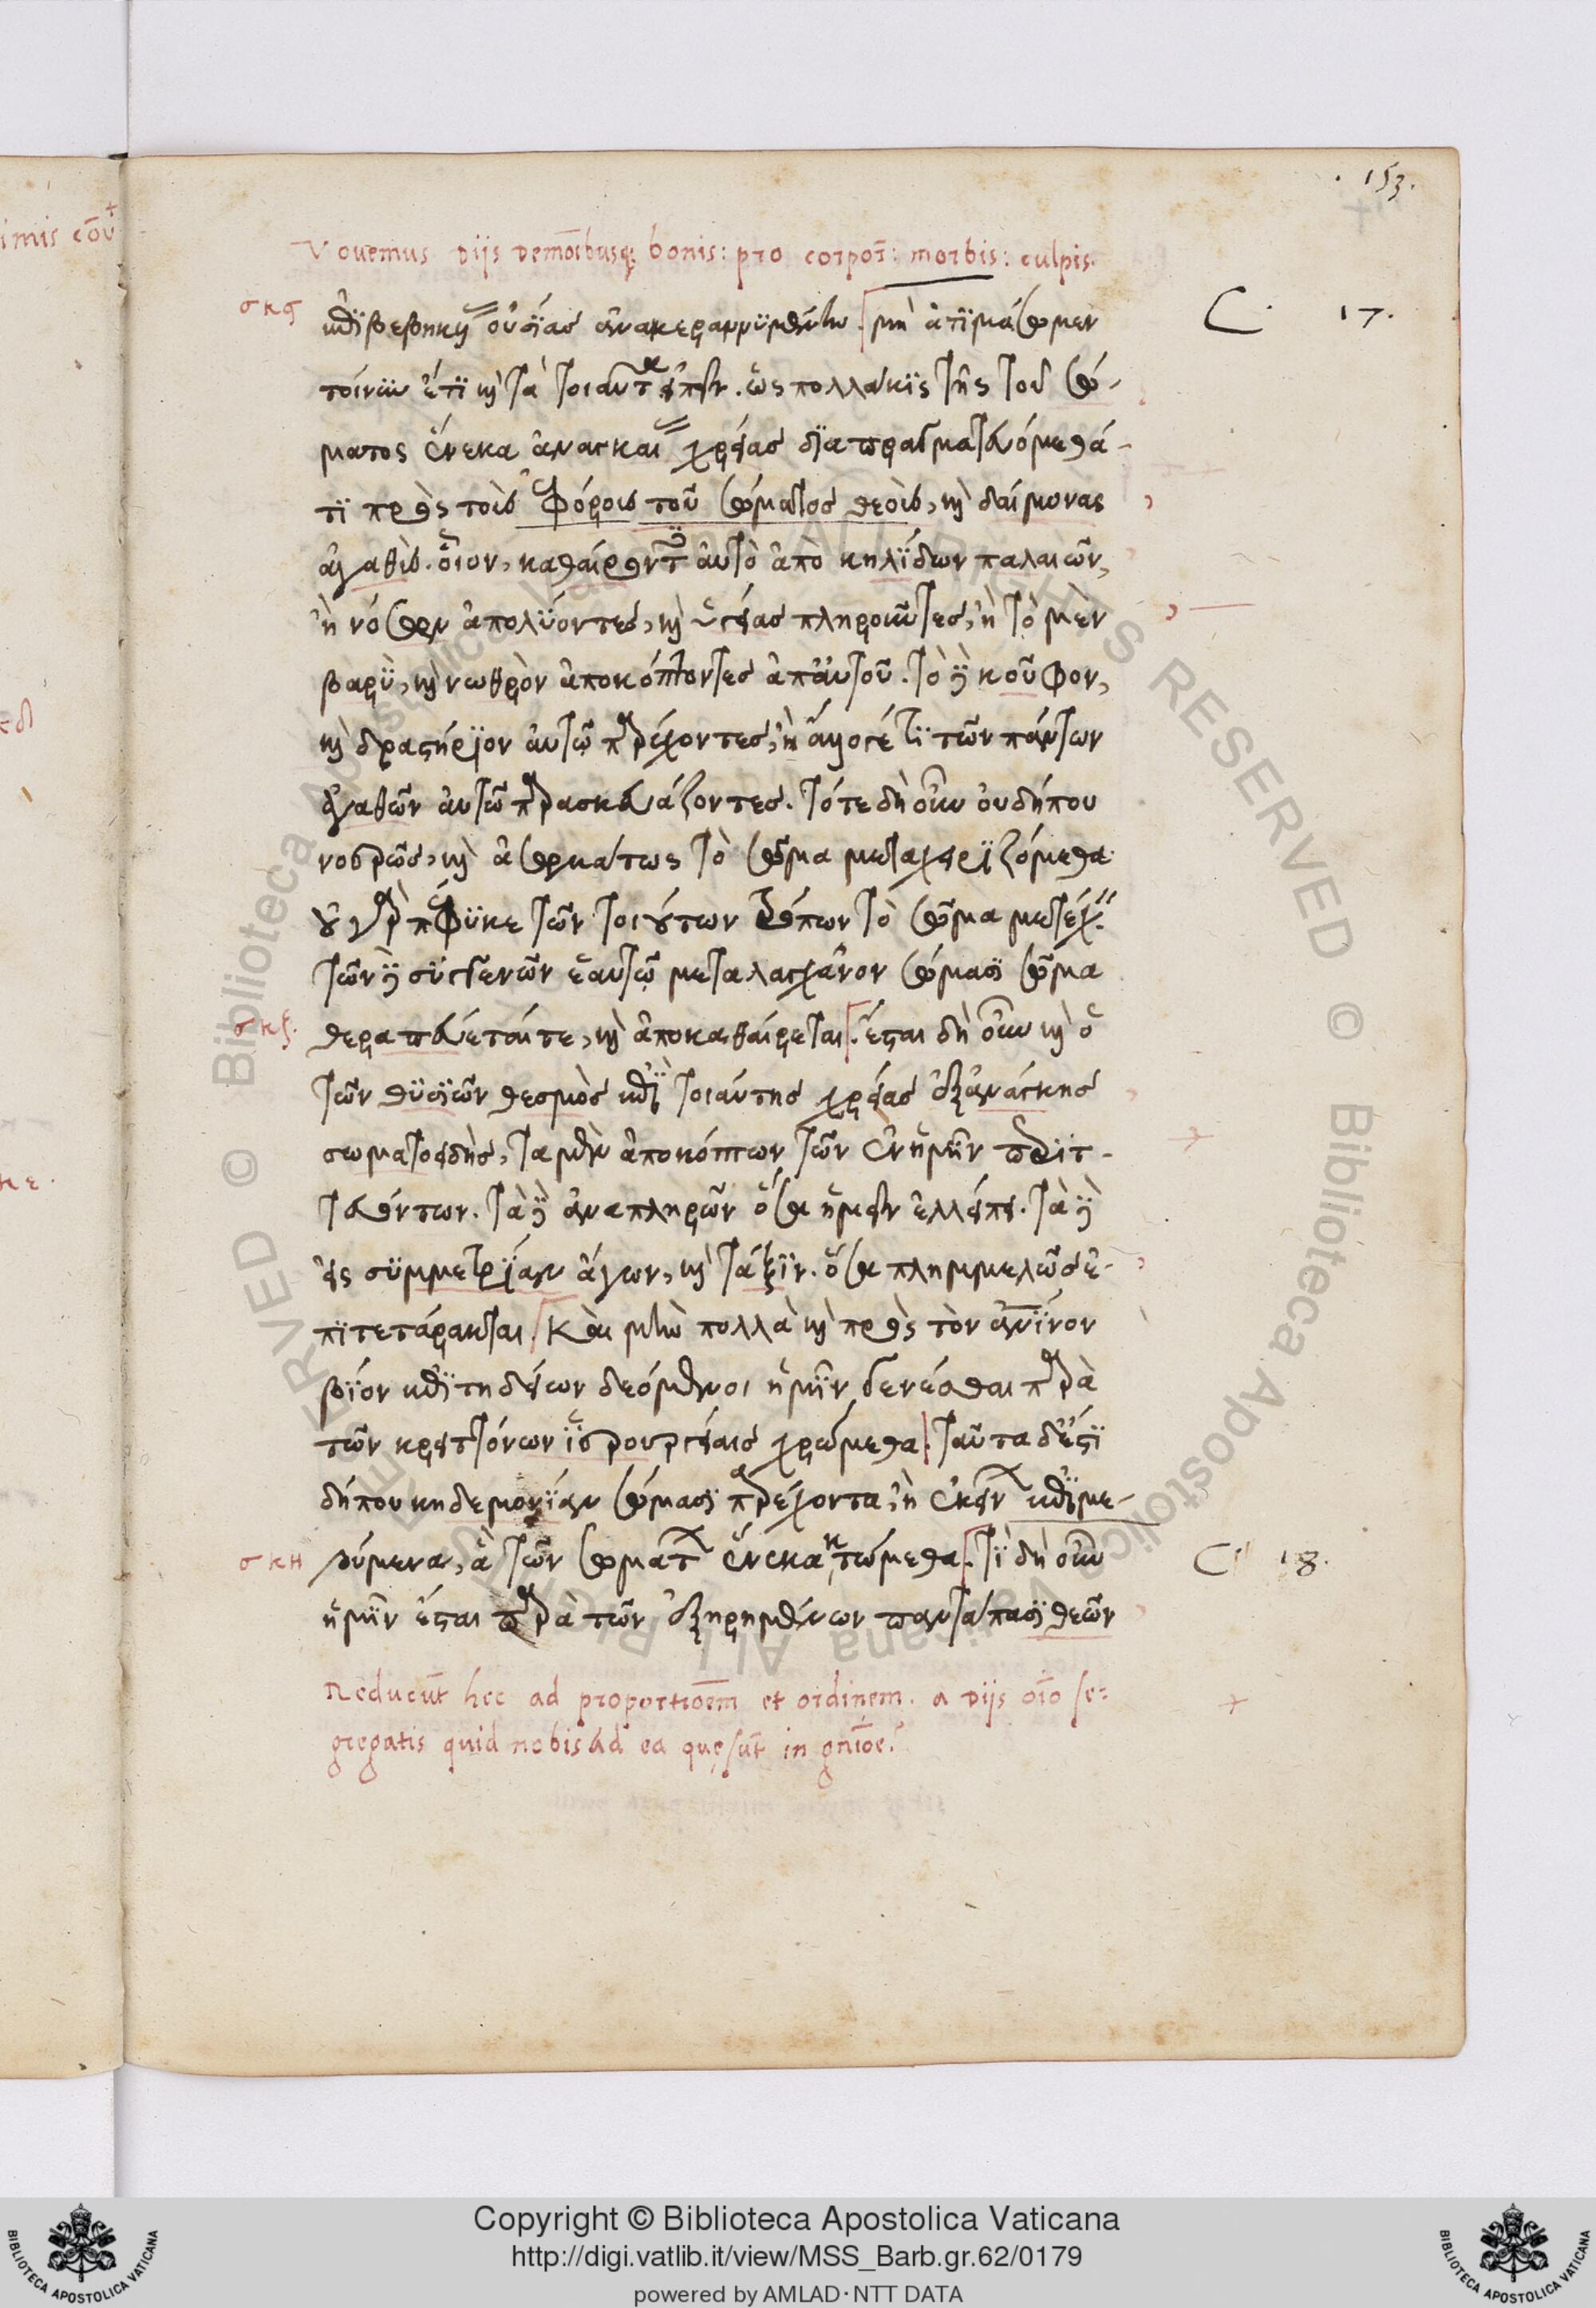 . 153.
Vouemus Dijs Demoībusq; bonis: pro corpoɍ: morbis: culpis.
σκϛ
καθϊβεβηκυί οὐσίας ἀνακεραννϋμένην. μὴ ἀτϊμάσωμεν
C. 17.
τοίνυν ἔτϊ καὶ τὰ τοιαῦτα εἰπεῖν. ὡς πολλάκϊς τῆς τοῦ σώ-
ματος ἕνεκα ἀναγκαί χρείας δϊαπραγματευόμεθά-
τϊ πρὸς τοὺς ἐφόρους τοῦ σώματος θεοὺς, καὶ δαίμονας
ἀγαθούς. οἷον, καθαίροντες αὐτὸ ἀπὸ κηλΐδων παλαιῶν,
ἢ νόσων ἀπολύοντες, καὶ ὑγείας πληροῦντες, ἢ τὸ μὲν
βαρὺ, καὶ νωθρὸν ἀποκόπτοντες ἀπ' αὐτοῦ. τὸ δὲ κοῦφον,
καὶ δραστήρϊον αὐτῷ παρέχοντες, ἢ ἄλλό γέ τϊ τῶν πάντων
ἀγαθῶν αὐτῷ παρασκευάζοντες. τότε δὴ οὖν οὐ δήπου
νοερῶς, καὶ ἀσωμάτως τὸ σῶμα μεταχειρϊζόμεθα
οὐ γὰρ πέφϋκε τῶν τοιούτων τρόπων τὸ σῶμα μετέχειν
τῶν δὲ συγγενῶν ἑαυτῷ μεταλαγχάνον σώμασϊ σῶμα
σκζ.
θεραπεύεταί τε, καὶ ἀποκαθαίρεται. ἔσται δὴ οὖν καὶ ὁ
τῶν θϋσϊῶν θεσμὸς ἐπϊ τοιαύτης χρείας ἐξ ἀνάγκης
σωματοειδὴς, τὰ μὲν ἀποκόπτων τῶν ἐν ἡμῖν περϊτ-
τευόντων. τὰ δὲ ἀναπληρῶν ὅσα ἡμῖν ἐλλείπει. τὰ δὲ
εἰς συμμετρϊάν ἄγων, καὶ τάξϊν. ὅσα πλημμελῶς ἐ-
πϊτετάρακται. Καὶ μὴν πολλὰ καὶ πρὸς τὸν ἀνϊνον
βϊον ἐπϊτηδείων δεόμενοι ἡμῖν γενέσθαι παρὰ
τῶν κρειττόνων ἱερουργείαις χρώμεθα. ταῦτα δ' ἐστϊ
δήπου κηδεμονϊάν σώμασϊ παρέχοντα, ἢ ἐκείνων ἐπϊμε-
σκη
λούμενα, ἃ τῶν σωμάτων ἕνεκα κτώμεθα. τϊ δὴ οὖν
C 18.
ἡμῖν ἔσται παρὰ τῶν ἐξῃρημένων παντάπασϊ θεῶν
Reducūt hec ad proportiōem et ordinem. a Dijs oīo se=
gregatis quid nobis ad ea que sūt in gnīoe?
Copyright © Biblioteca Apostolica Vaticana
http://digi.vatlib.it/view/MSS_Barb.gr.62/0179
powered by AMLAD·NTT DATA